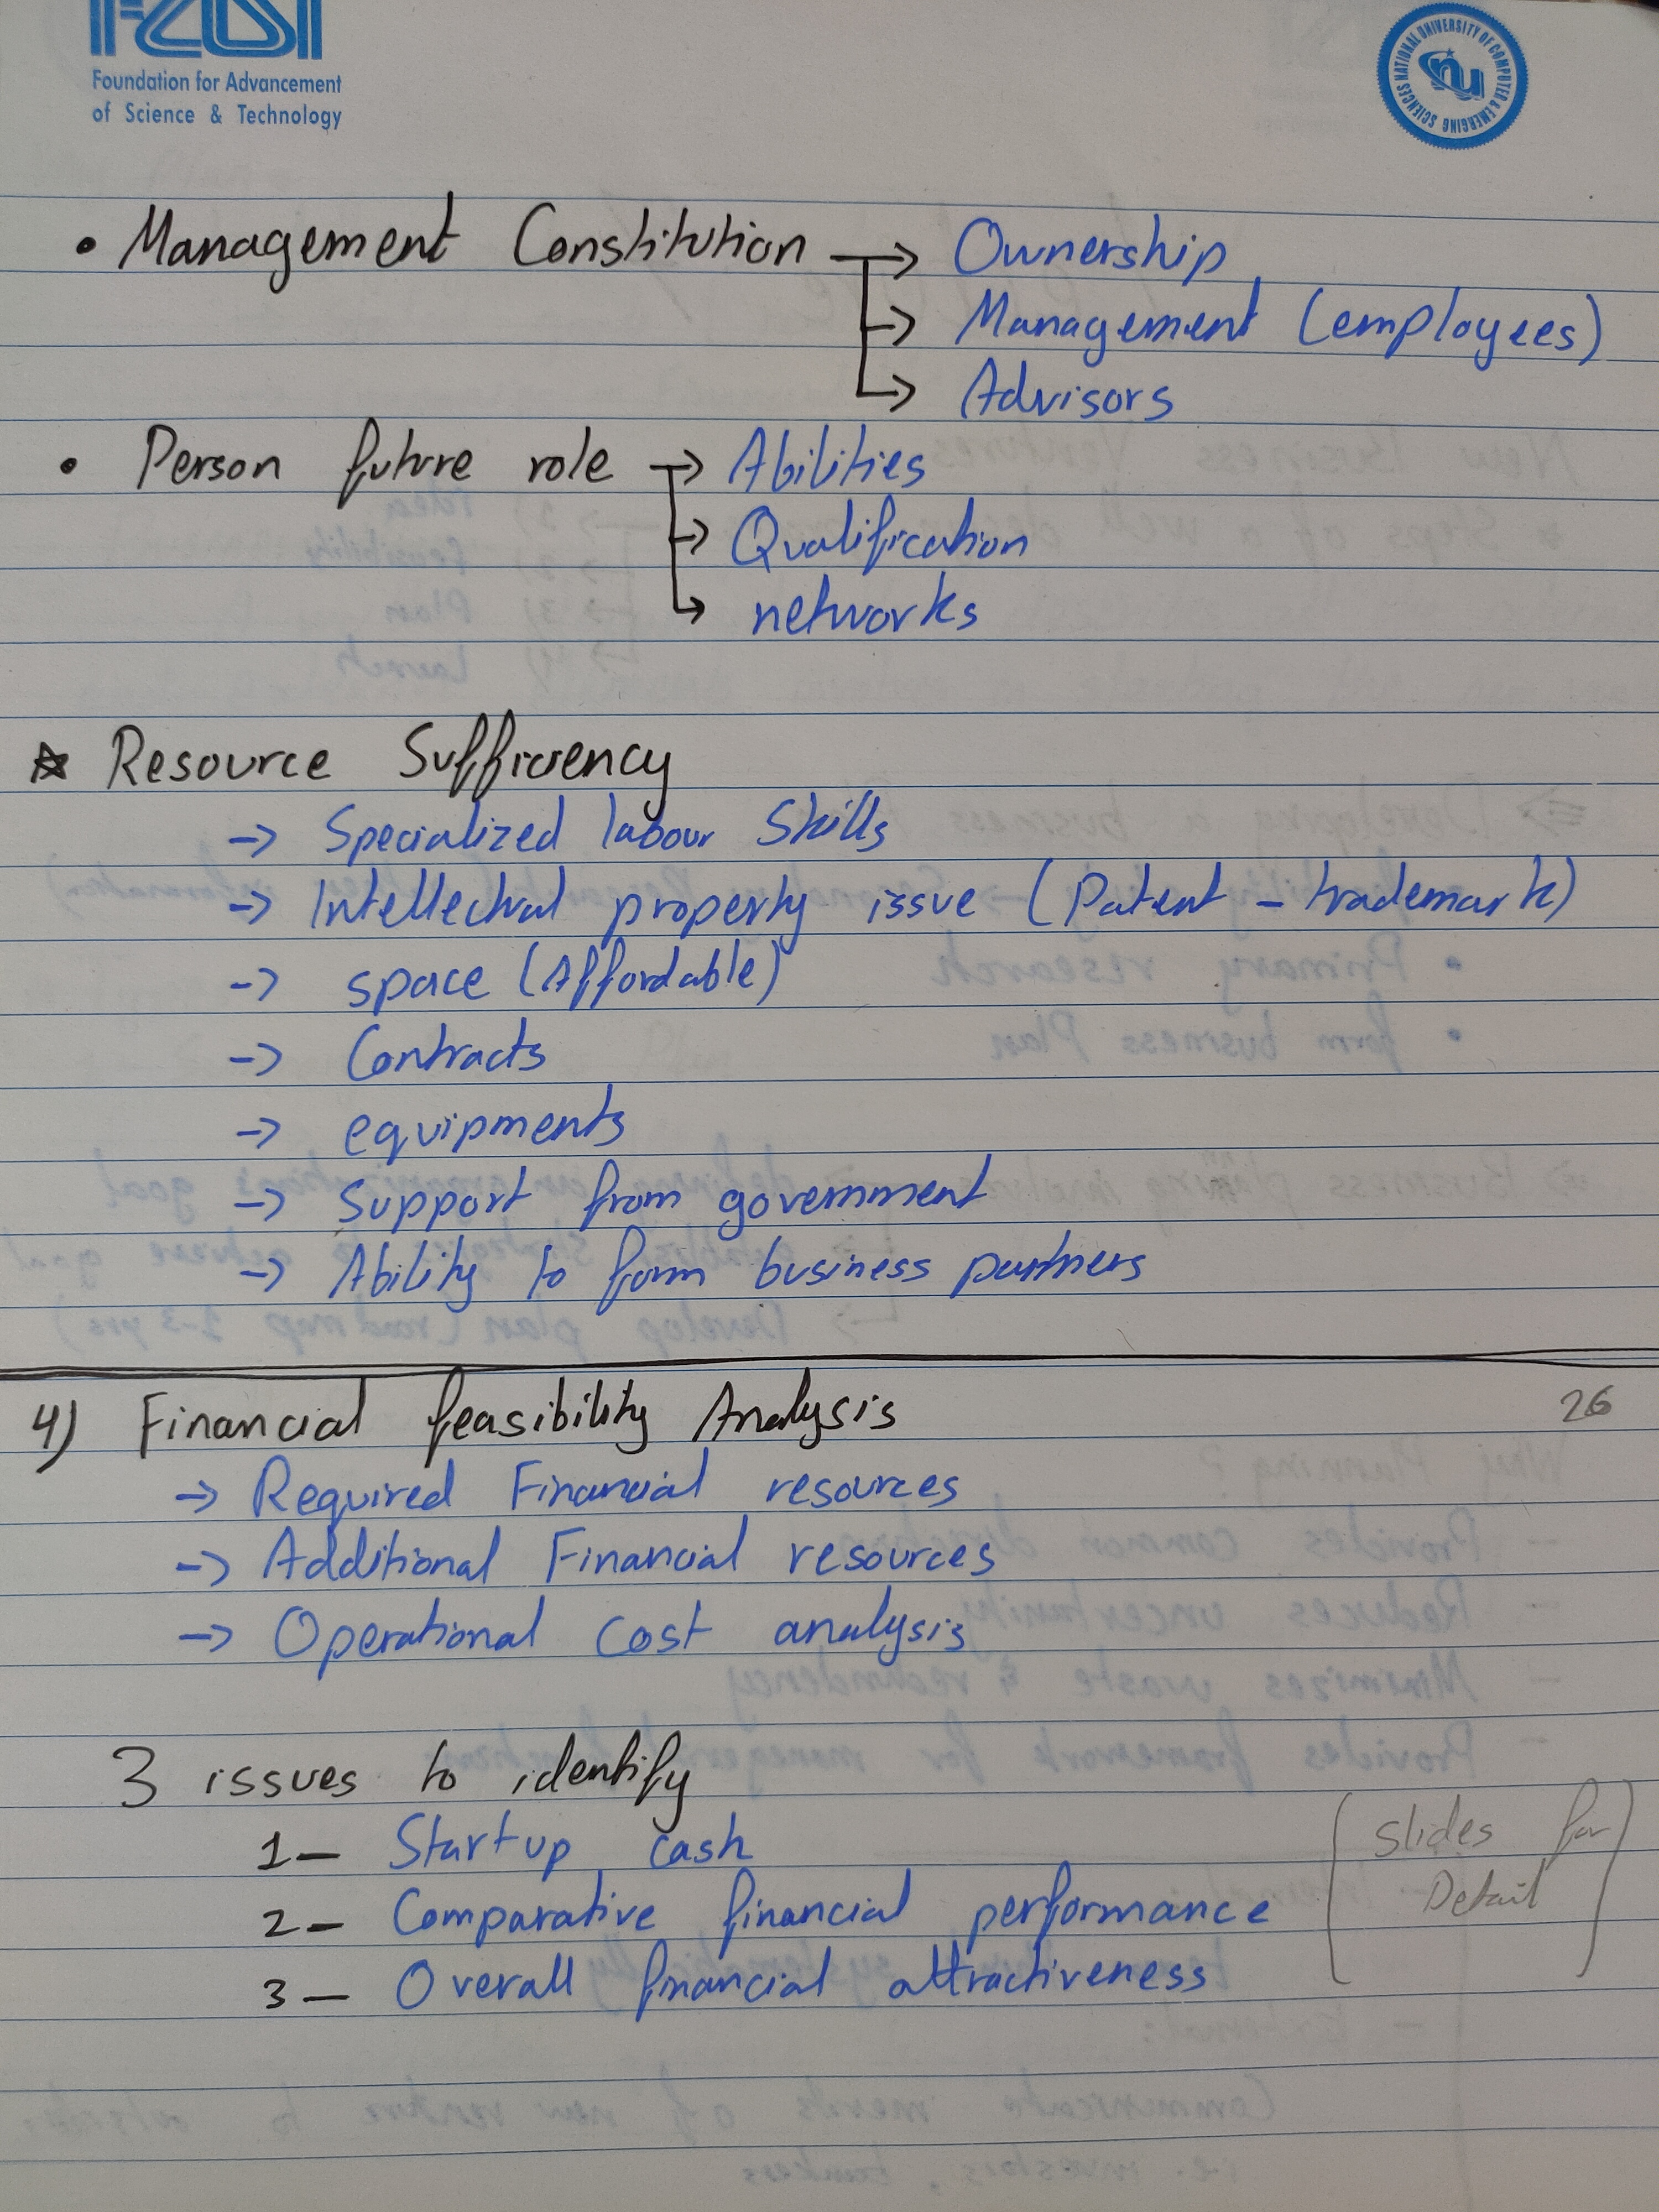 FAST
Foundation for Advancement
of Science & Technology
NATIONAL UNIVERSITY OF COMPUTER & EMERGING SCIENCES
nu
• Management Constitution → Ownership
→ Management (employees)
→ Advisors
• Person future role → Abilities
→ Qualification
→ networks
☆ Resource Sufficiency
→ Specialized labour Skills
→ Intellectual property issue (Patent - trademark)
→ space (Affordable)
→ Contracts
→ equipments
→ support from government
→ Ability to form business partners
4) Financial feasibility Analysis 26
→ Required Financial resources
→ Additional Financial resources
→ Operational cost analysis
3 issues to identify
1- Startup cash
2- Comparative financial performance
3- Overall financial attractiveness
(Slides for
Detail)